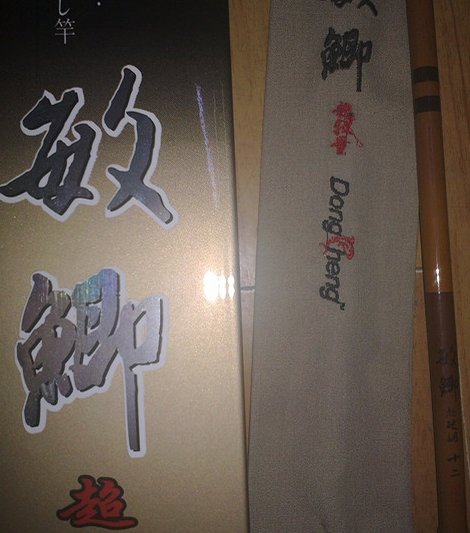 し竿
敏鯽
超
敏
鯽
Dong heng
敏鯽
十二